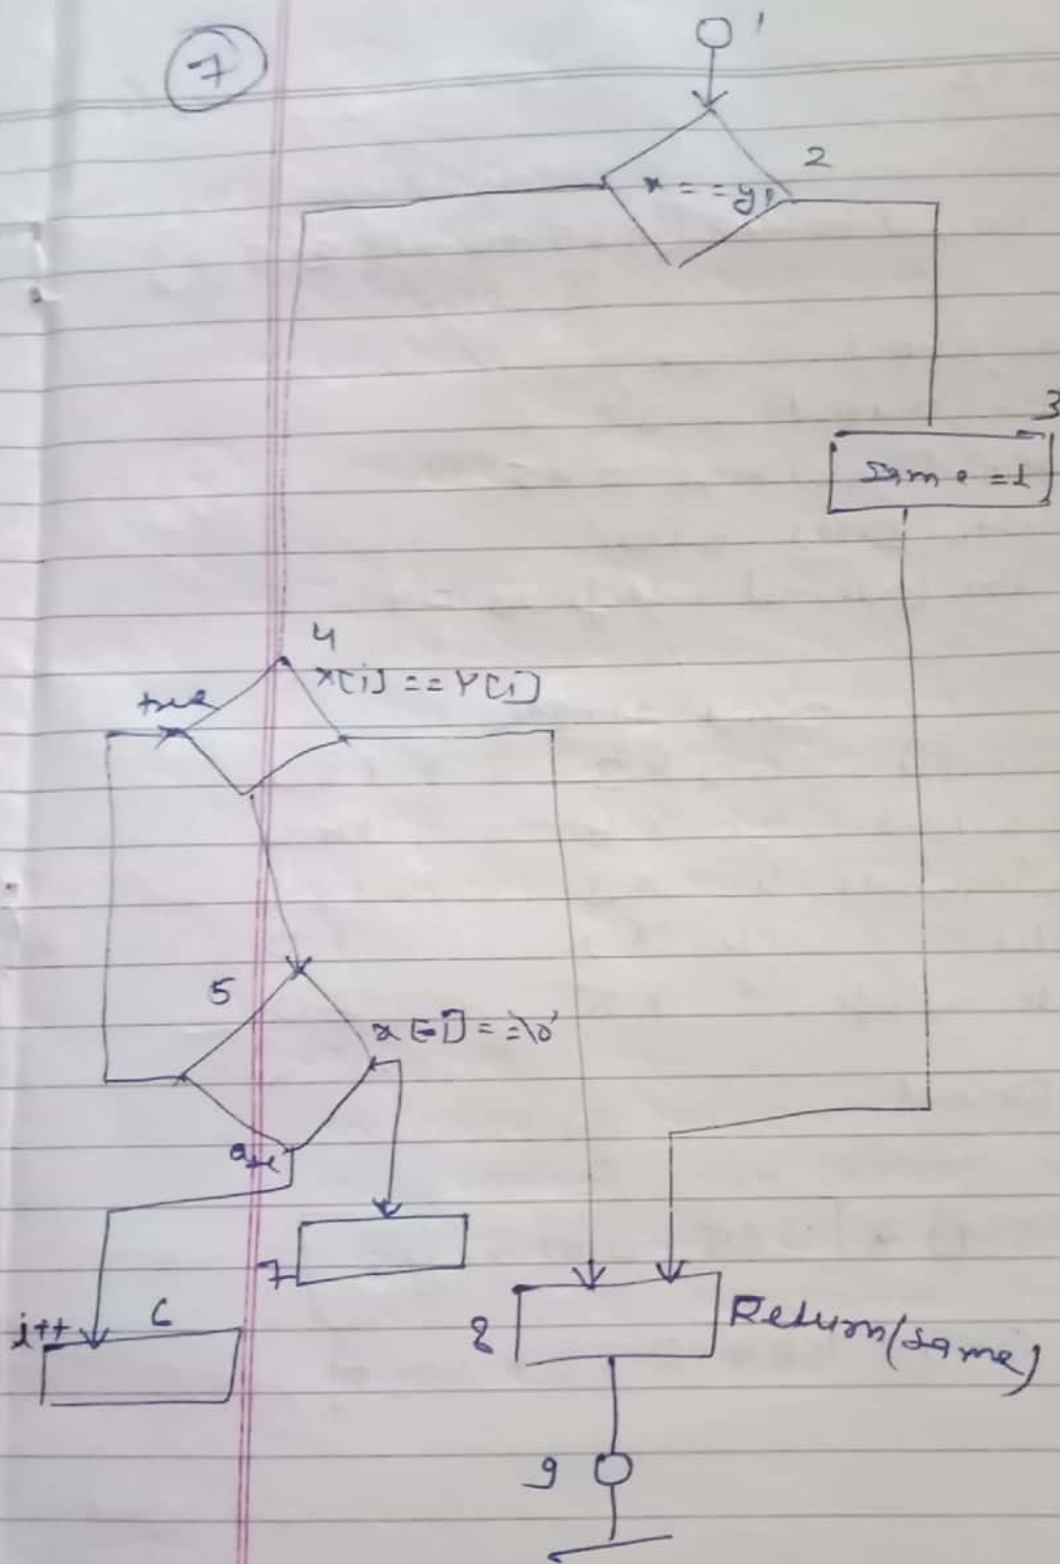 7
1
2
x == y
3
same = 1
4
x[i] == Y[i]
true
5
x[i] == '\0'
7
6
i++
8
Return(same)
9